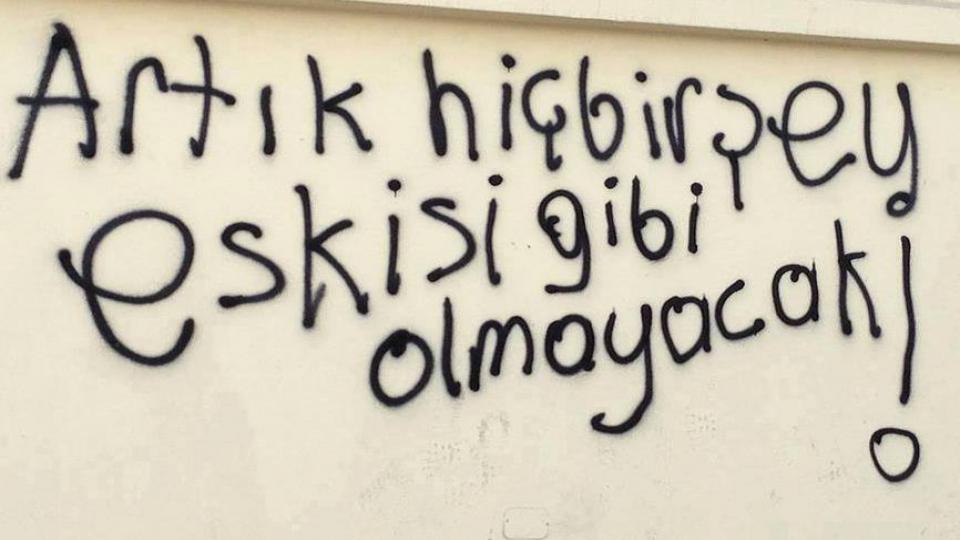 Artık hiçbirşey
eskisi gibi
olmayacak!